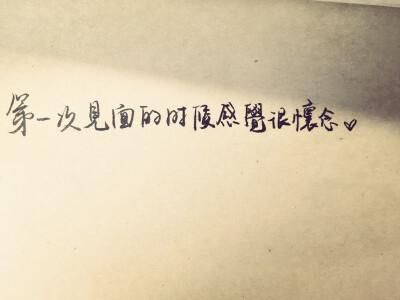 第一次見面的时候感覺很懷念♥